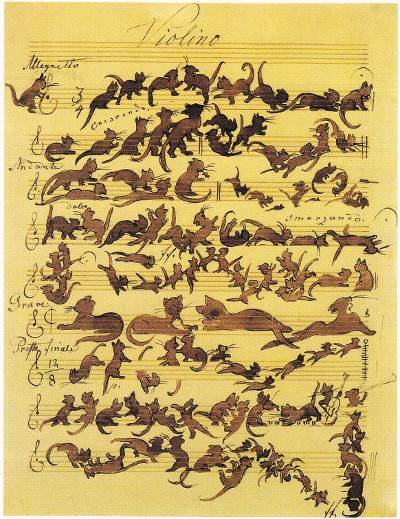 Violino
Allegretto
3
4
Crescendo
Andante
dolce
Smorzando.
ff
Grave
Presto finale
12
8
p.
ff.